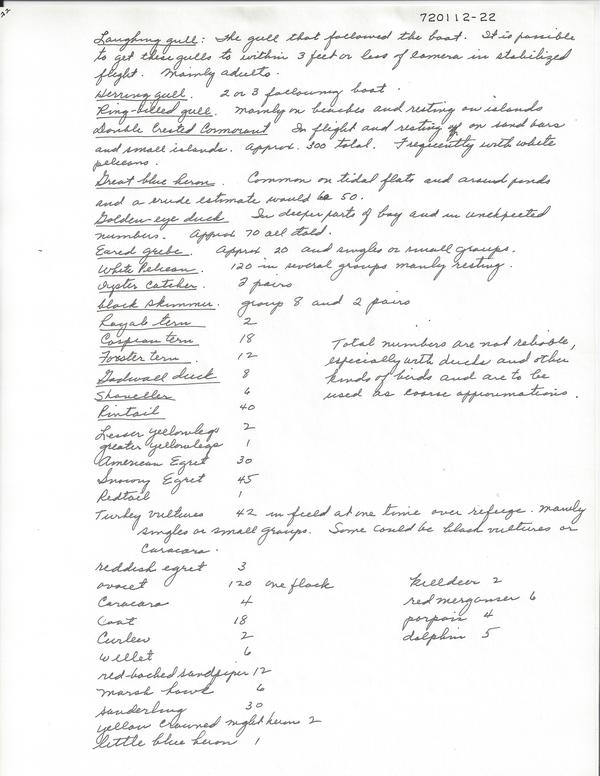 720112-22
Laughing gull: The gull that followed the boat. It is possible
to get these gulls to within 3 feet or less of camera in stabilized
flight. Mainly adults.
Herring gull. 2 or 3 following boat.
Ring-billed gull. Mainly on beaches and resting on islands
Double Crested Cormorant In flight and resting on sand bars
and small islands. Approx. 300 total. Frequently with white
pelicans.
Great blue heron. Common on tidal flats and around ponds
and a crude estimate would be 50.
Golden-eye duck In deeper parts of bay and in unexpected
numbers. Approx 70 all told.
Eared grebe. Approx 20 and singles or small groups.
White Pelican. 120 in several groups mainly resting.
Oyster Catcher. 2 pairs
black skimmer. group 8 and 2 pairs
Royal tern 2
Caspian tern 18
Forster tern. 12
Gadwall duck 8
Shoveller 6
Pintail 40
Total numbers are not reliable,
especially with ducks and other
kinds of birds and are to be
used as coarse approximations.
Lesser yellowlegs 2
greater yellowlegs 1
American Egret 30
Snowy Egret 45
Redtail 1
Turkey vultures 42 in field at one time over refuge. Mainly
singles or small groups. Some could be black vultures or
Caracara.
reddish egret 3
avocet 120 one flock
Caracara 4
Coot 18
Curlew 2
Willet 6
red-backed sandpiper 12
Marsh hawk 6
sanderling 30
yellow Crowned night heron 2
little blue heron 1
killdeer 2
red merganser 6
porpois 4
dolphin 5